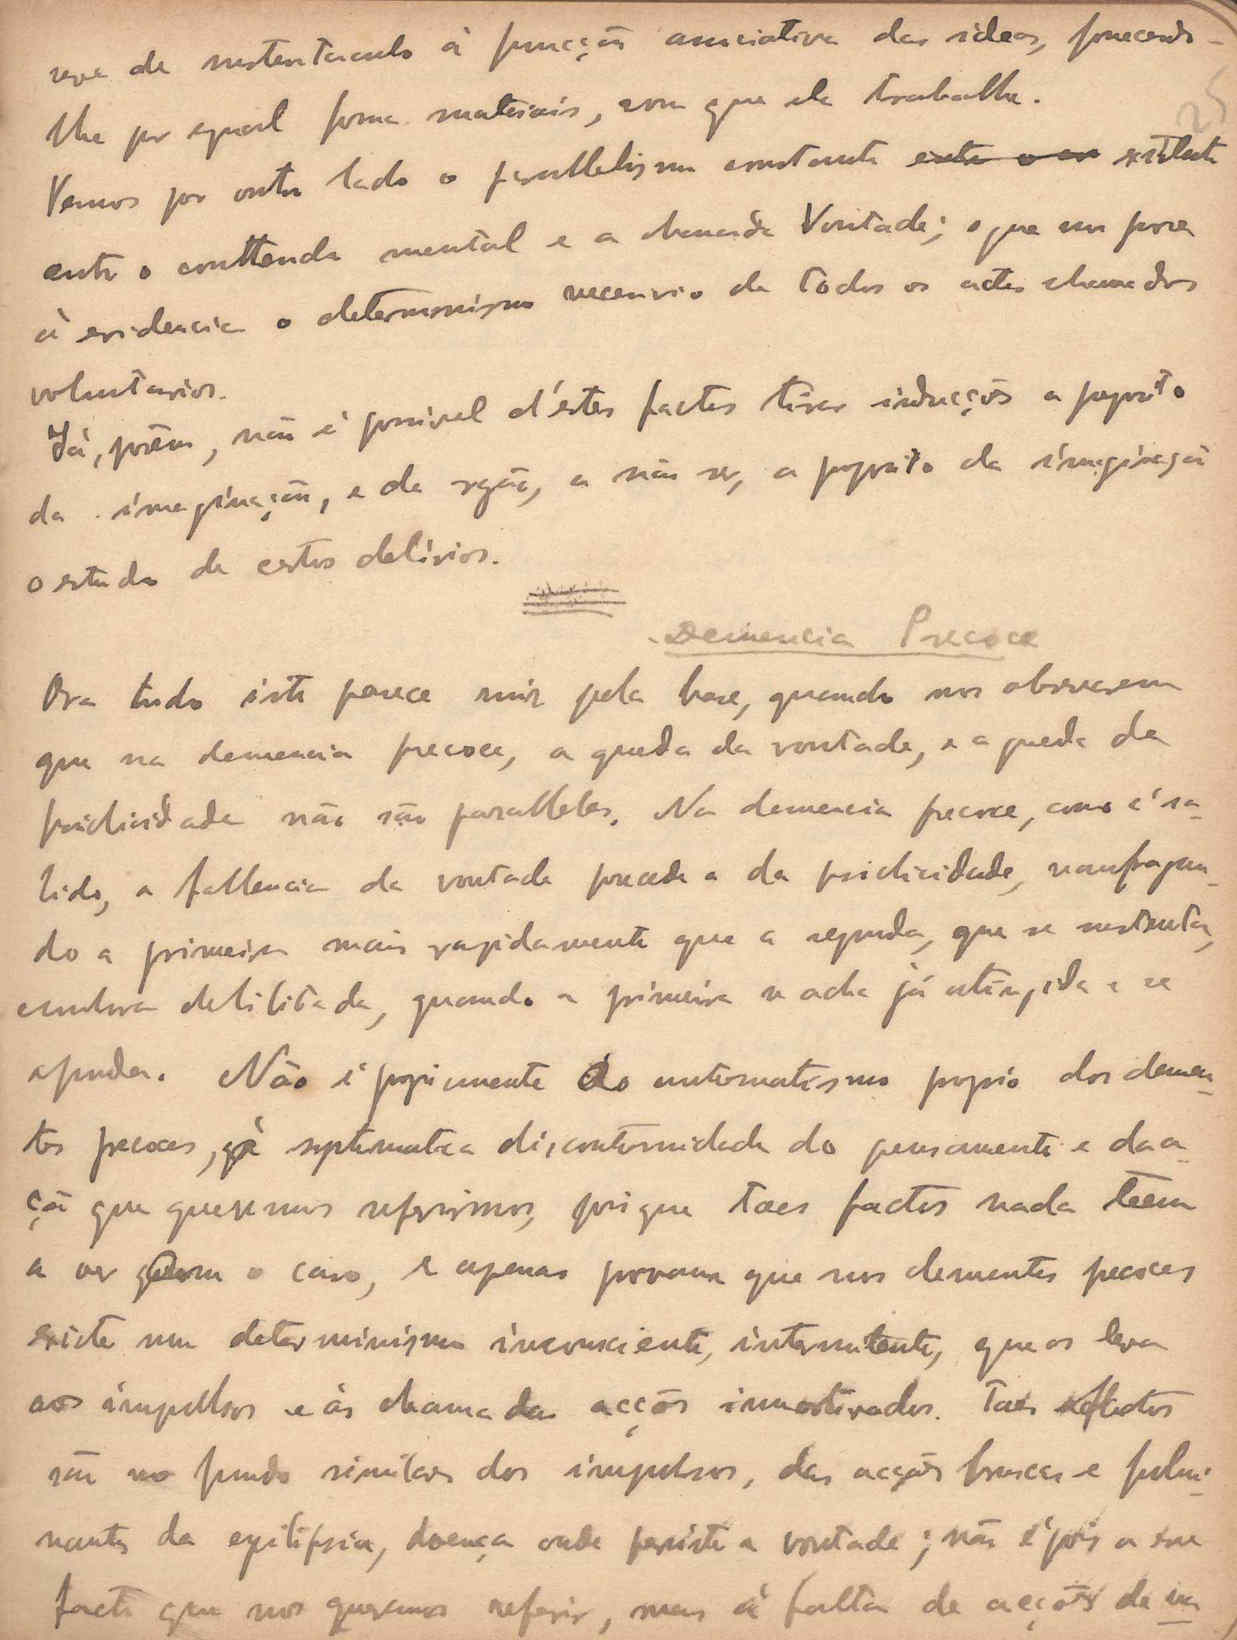 serve de sustentaculo á funcção associativa das ideas, fornecendo-
lhe por egual forma materiais, com que ela trabalhe.
25
Vemos por outro lado o parallelismo constante existente
entre o conttendo mental e a chamada Vontade; o que nos prova
á evidencia o determinismo necessario de todos os actos chamados
voluntarios.
Já, porêm, não é possivel d'éstes factos tirar inducções a proposito
da imaginação, e da rasão, a não ser, a proposito da imaginação
o estudo de certos delirios.
Demencia Precoce
Ora tudo isto parece ruir pela base, quando nos observarem
que na demencia precoce, a queda da vontade, e a queda da
psichicidade não são parallelas. Na demencia precoce, como é sa-
bido, a fallencia da vontade precede a da psichicidade, naufragan-
do a primeira mais rapidamente que a segunda, que se sustenta,
embora debilitada, quando a primeira se acha já atingida e se
afunda. Não é propriamente ao automatismo proprio dos demen-
tes precoces, á systematica discontinuidade do pensamento e da a-
ção que queremos referirmos, porque taes factos nada teem
a ver com o caso, e apenas provam que nos dementes precoces
existe um determinismo inconsciente, intermitente, que os leva
aos impulsos e ás chamadas acções immotivadas. Taes factos
são no fundo similares dos impulsos, das acções bruscas e fulmi-
nantes da epilepsia, doença onde persiste a vontade; não é pois a esse
facto que nos queremos referir, mas á falta de acções de